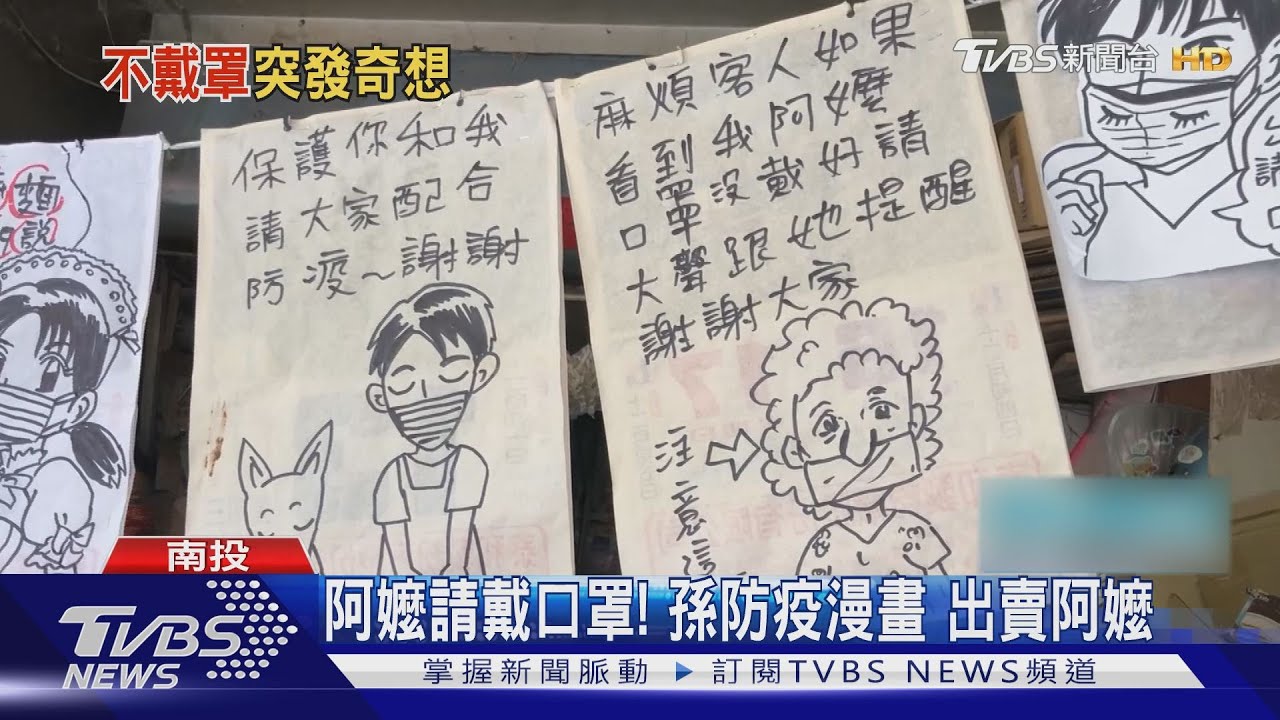 不戴罩突發奇想
TVBS新聞台 HD
麵
說
保護你和我
請大家配合
防疫~謝謝
麻煩客人如果
看到我阿嬤
口罩沒戴好請
大聲跟她提醒
謝謝大家
注意這
請
南投
TVBS NEWS
阿嬤請戴口罩! 孫防疫漫畫 出賣阿嬤
掌握新聞脈動 ▶ 訂閱TVBS NEWS頻道